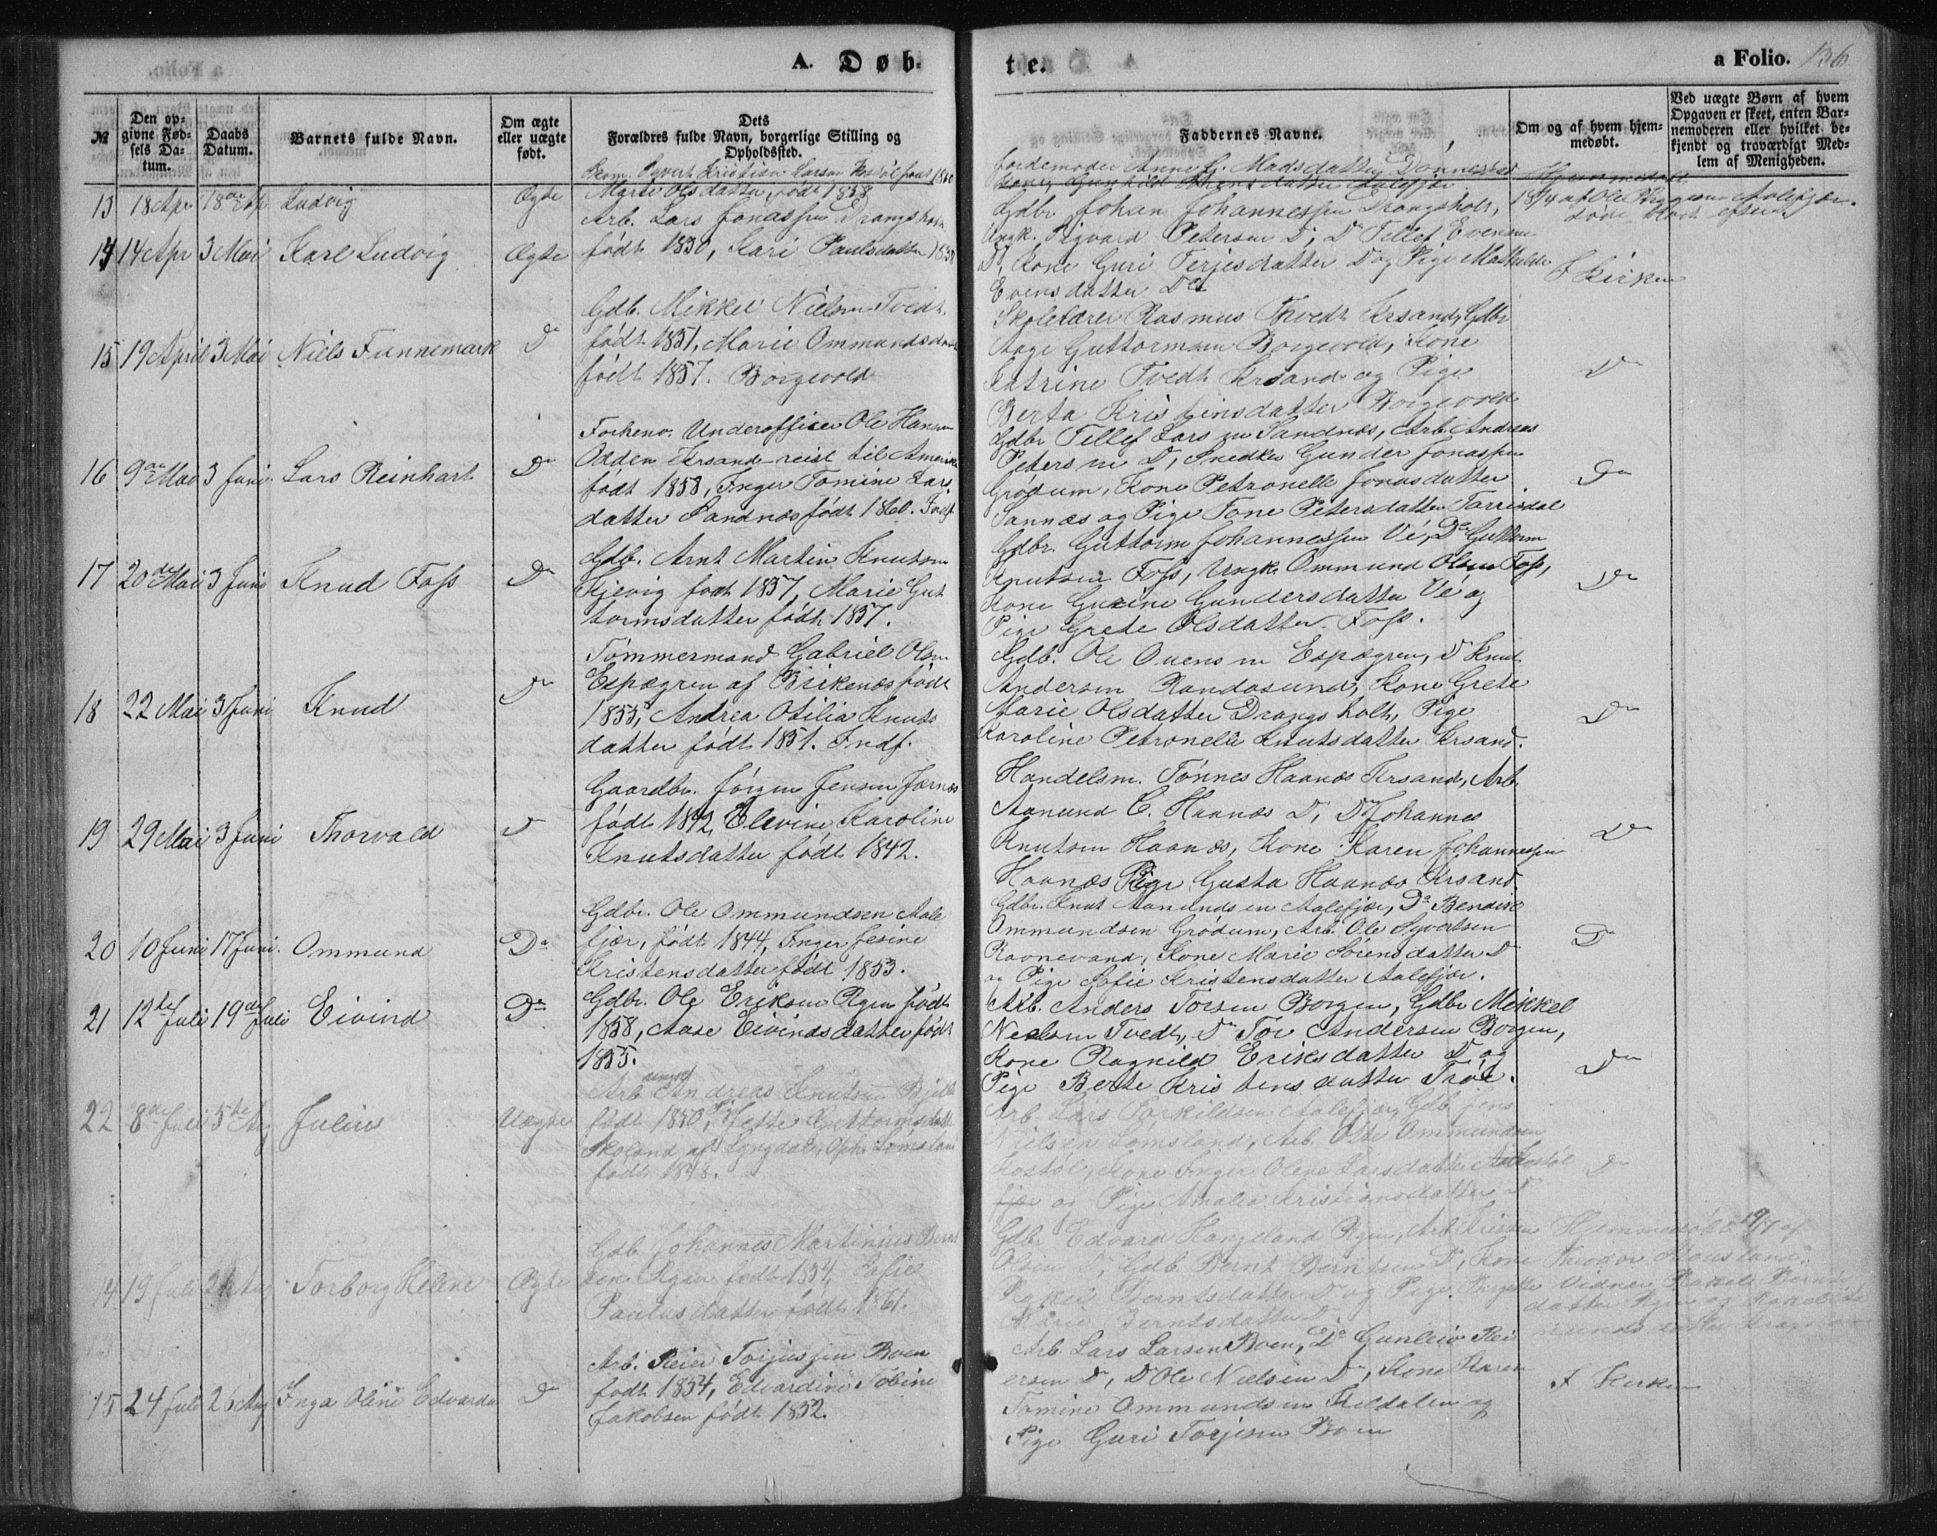 A. Døb-
te.
a Folio. 136
№
Den op-
givne Fød-
sels Da-
tum.
Daabs
Datum.
Barnets fulde Navn.
Om ægte
eller uægte
født.
Dets
Forældres fulde Navn, borgerlige Stilling og
Opholdssted.
Faddernes Navne.
Om og af hvem hjem-
medøbt.
Ved uægte Børn af hvem
Opgaven er skeet, enten Bar-
nemoderen eller hvilket be-
kjendt og troværdigt Med-
lem af Menigheden.
13 18 Apr Ludvig Ægte
Kristian Larsen
Marie Olsdatter født 1858
Jordemoder Madsdatter
14 14 Apr 3 Mai Karl Ludvig Ægte
Arb. Lars Jonassen Drangsholt
født 1830, Kari Paulsdatter 1830
Gdbr Johan Johannessen Drangsholt,
Ungk. Sigvard Petersen D, Do Tellef Evensen
D, Kone Guri Terjesdatter D og Pige Mathilde
Evensdatter Do
I Kirken
15 19 April 3 Mai Niels Funnemark Do
Gdb. Mikkel Nielsen Tvedt
født 1851, Marie Ommundsdatter
født 1857. Borgevold
Skolelærer Rasmus Thvedt Krsand, Gdbr
Aage Guttormsen Borgevold, Kone
Katrine Tvedt Krsand og Pige
Berta Kristensdatter Borgevold
Do
16 9de Mai 3 Juni Lars Reinhart Do
Underofficer Ole Hansen
Odden Krsand reist til Amerika
født 1858, Inger Tomine Lars
datter Sandnæs født 1860.
Gdbr Tellef Larsen Sandnæs, Arb. Andreas
Petersen D, Snedker Gunder Jonassen
Grødum, Kone Petronelle Jonasdatter
Sannæs og Pige Tone Petersdatter Torrisdal
Do
17 20de Mai 3 Juni Knud Foss Do
Gdb. Arnt Martin Knutsen
Kjevig født 1857, Marie Gut
tormsdatter født 1857.
Gdbr. Guttorm Johannessen Vé, Do Guttorm
Knutsen Foss, Ungk. Ommund Olsen Foss,
Kone Gurine Gundersdatter Vé og
Pige Grete Olsdatter Foss.
Do
18 22 Mai 3 Juni Knud Do
Tømmermand Gabriel Olsen
Espegren af Birkenæs født
1853, Andrea Otilia Knuts
datter født 1851. Indf.
Gdb. Ole Ovensen Espegren, D Knud
Andersen Randøsund, Kone Grete
Marie Olsdatter Drangsholt, Pige
Karoline Petronelle Knutsdatter Krsand.
Do
19 29 Mai 3 Juni Thorvald D
Gaardbr. Jørgen Jensen Jernes
født 1842, Elevine Karoline
Knutsdatter født 1842.
Handelsm. Tønnes Haanæs Krsand, Arb.
Aanund C. Haanæs D, D Johannes
Knutsen Haanæs, Kone Karen Johannessen
Haanæs Pige Gusta Haanæs Krsand
Do
20 10 Juni 17 Juni. Ommund Do
Gdbr. Ole Ommundsen Aale
fjær, født 1844, Inger Jesine
Kristensdatter født 1853.
Gdbr. Knut Aanundsen Aalefjær, Do Bendix
Ommundsen Grødum, Arb. Ole Syvertsen
Ravnevand, Kone Marie Sørensdatter D
og Pige Sofie Kristensdatter Aalefjær.
D
21 12te Juli 19de Juli Eivind Do
Gdbr. Ole Eriksen Rgen født
1858, Aase Eivindsdatter født
1855.
Arb. Anders Torsen Borgen, Gdbr Mikkel
Nielsen Tvedt, Do Tor Andersen Borgen,
Kone Ragnild Eriksdatter D og
Pige Berte Kristensdatter Trøe.
Do
22 8de Juli 5te Aug Julius Uægte
Arb. Andreas Knutsen
født 1850, Jette Guttormsdatter
Skoland af Lyngdal, Oph. Lomsland
født 1848.
Arb. Lars Torkildsen Aalefjær, Gdb. Jens
Nielsen Lomsland, Arb. Ole Ommundsen
Kostøl, Kone Inger Olene Larsdatter Kostøl
og Pige Amalia Kristiansdatter D
Do
14 19 Juli 26 Aug Torborg Helene Ægte
Gdb. Johannes Martinius Bernt
sen Rgen født 1854, Sofie
Paulusdatter født 1861.
Gdbr Edvard Haugeland Rgen, Arb. Kristen
Olsen D, Gdb. Bernt Berntsen D, Kone
Rakel Berntsdatter D og Pige Birgitte
Marie Berntsdatter D
Hjemmedøbt 19/7 af
Theodor
Vidner, Rakel Bernts
datter Rgen og
15 24 Juli 26 Aug Inga Oline Edvarda Do
Arb. Reier Torjussen Boen
født 1854, Edvardine Tobine
Jakobsen født 1852.
Arb. Lars Larsen Boen, Do Gunleiv Rei
ersen D, D Ole Nielsen D, Kone Karen
Tomine Ommundsen Kildalen og
Pige Guri Torjesen Boen
I Kirken